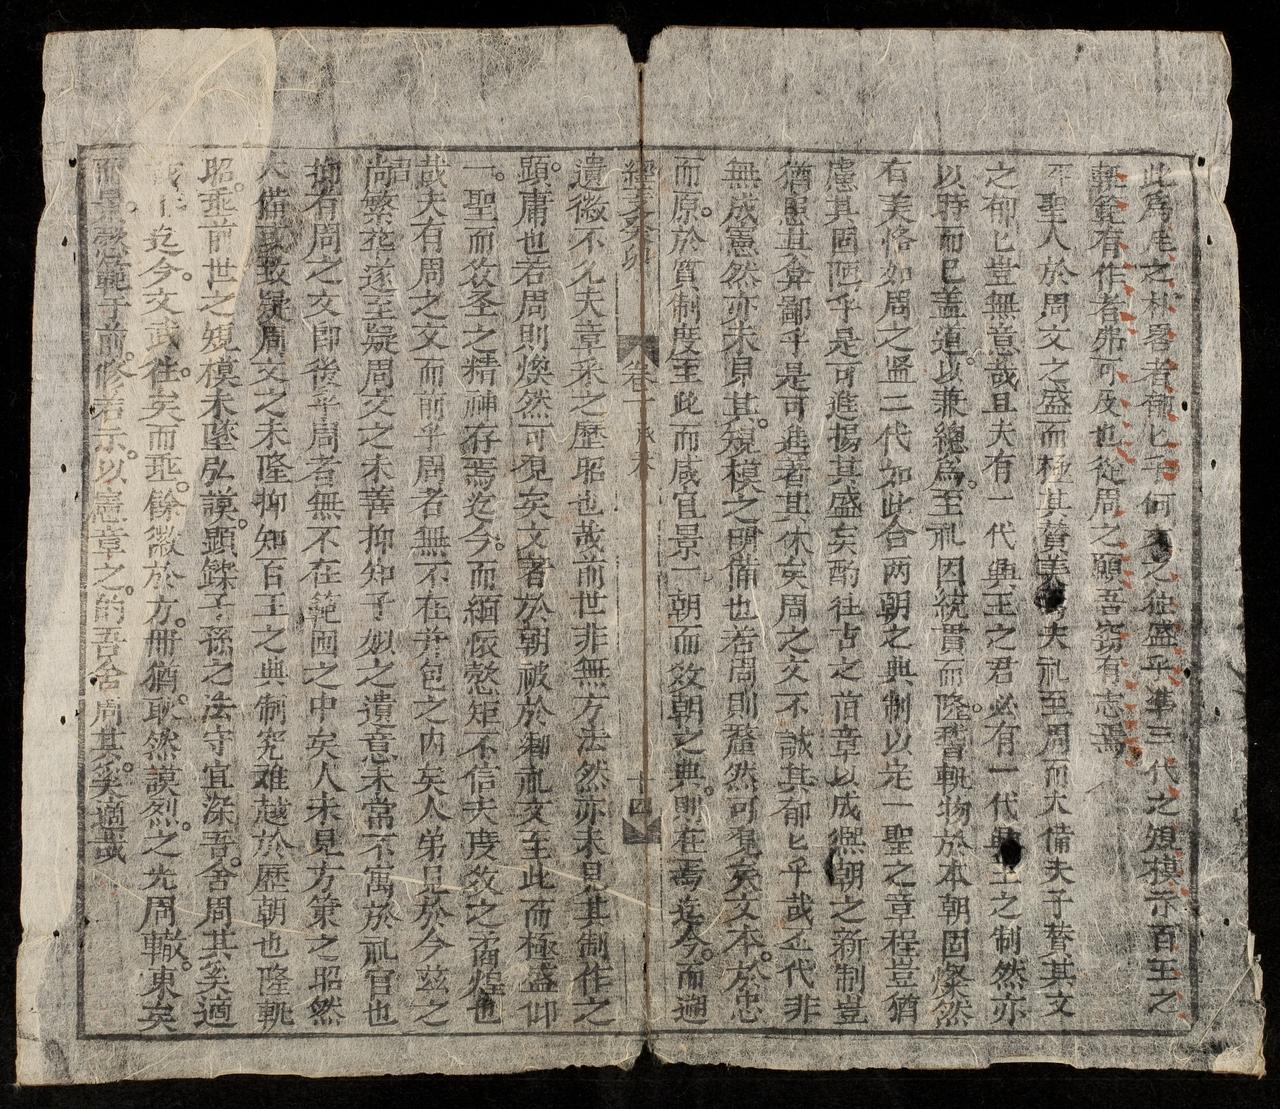 此爲尾之林畧者郁匕乎何
之從盛乎準三代之規模示百王之
軌範有作者弗可及也從周之願吾窃有志焉
聖人於周文之盛而極其賛美
夫礼至周而大備夫子賛其文
之郁匕豈無意哉且夫有一代興王之君必有一代興王之制然亦
以時而已盖道以兼總爲至礼因統貫而隆瞽軌物於本朝固燦然
有美恪如周之盟二代如此合两朝之典制以定一聖之章程豈猶
慮其固陋乎是可進揚其盛矣酌往古之旧章以成熙朝之新制豈
猶照其弇鄙乎是可進者其休矣周之文不誠其郁匕乎哉
代非
無成憲然亦未見其規模之明備也若周則釐然可覔矣文本於忠
而原於質制度至此而咸宜景一朝而效朝之典則在焉迄今而遡
經義
卷一
十四
遺徽不允夫章采之歷昭也哉前世非無方法然亦未見其制作之
顕庸也若周則煥然可現矣文著於朝被於
礼文至此而極盛仰
一聖而效圣之精神存焉迄今而緬懷愨矩不信夫度敘之
煌也
哉夫有周之文而前乎周者無不在并包之内矣人弟見於今茲之
尚繁花遂至疑周文之未善抑知子姒之遺意未當不寓於礼官也
抑有周之文即後乎周者無不在範囲之中矣人未見方策之昭然
大備或致疑周文之未隆抑知百王之典制究难越於歷朝也隆軌
昭垂前世之規模未墜弘謨顕鑠子孫之法守宜深吾舍周其奚適
迄今文武往矣而
餘徽於方冊猶耿然謨烈之光周轍東矣
而景
範于前修若示以憲章之的吾舍周其奚適哉